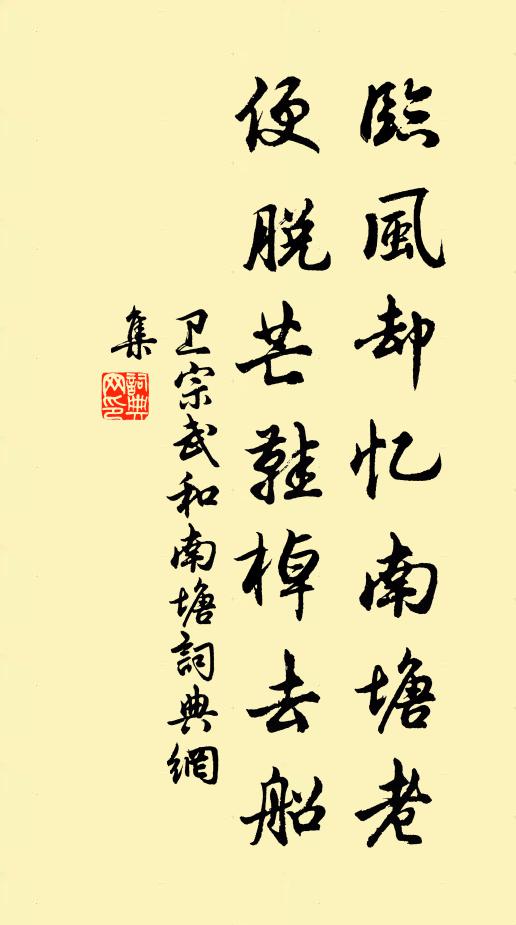 臨風却忆南塘老
便脱芒鞋棹去船
卫宗武和南塘詞典網
集
詞典
网印